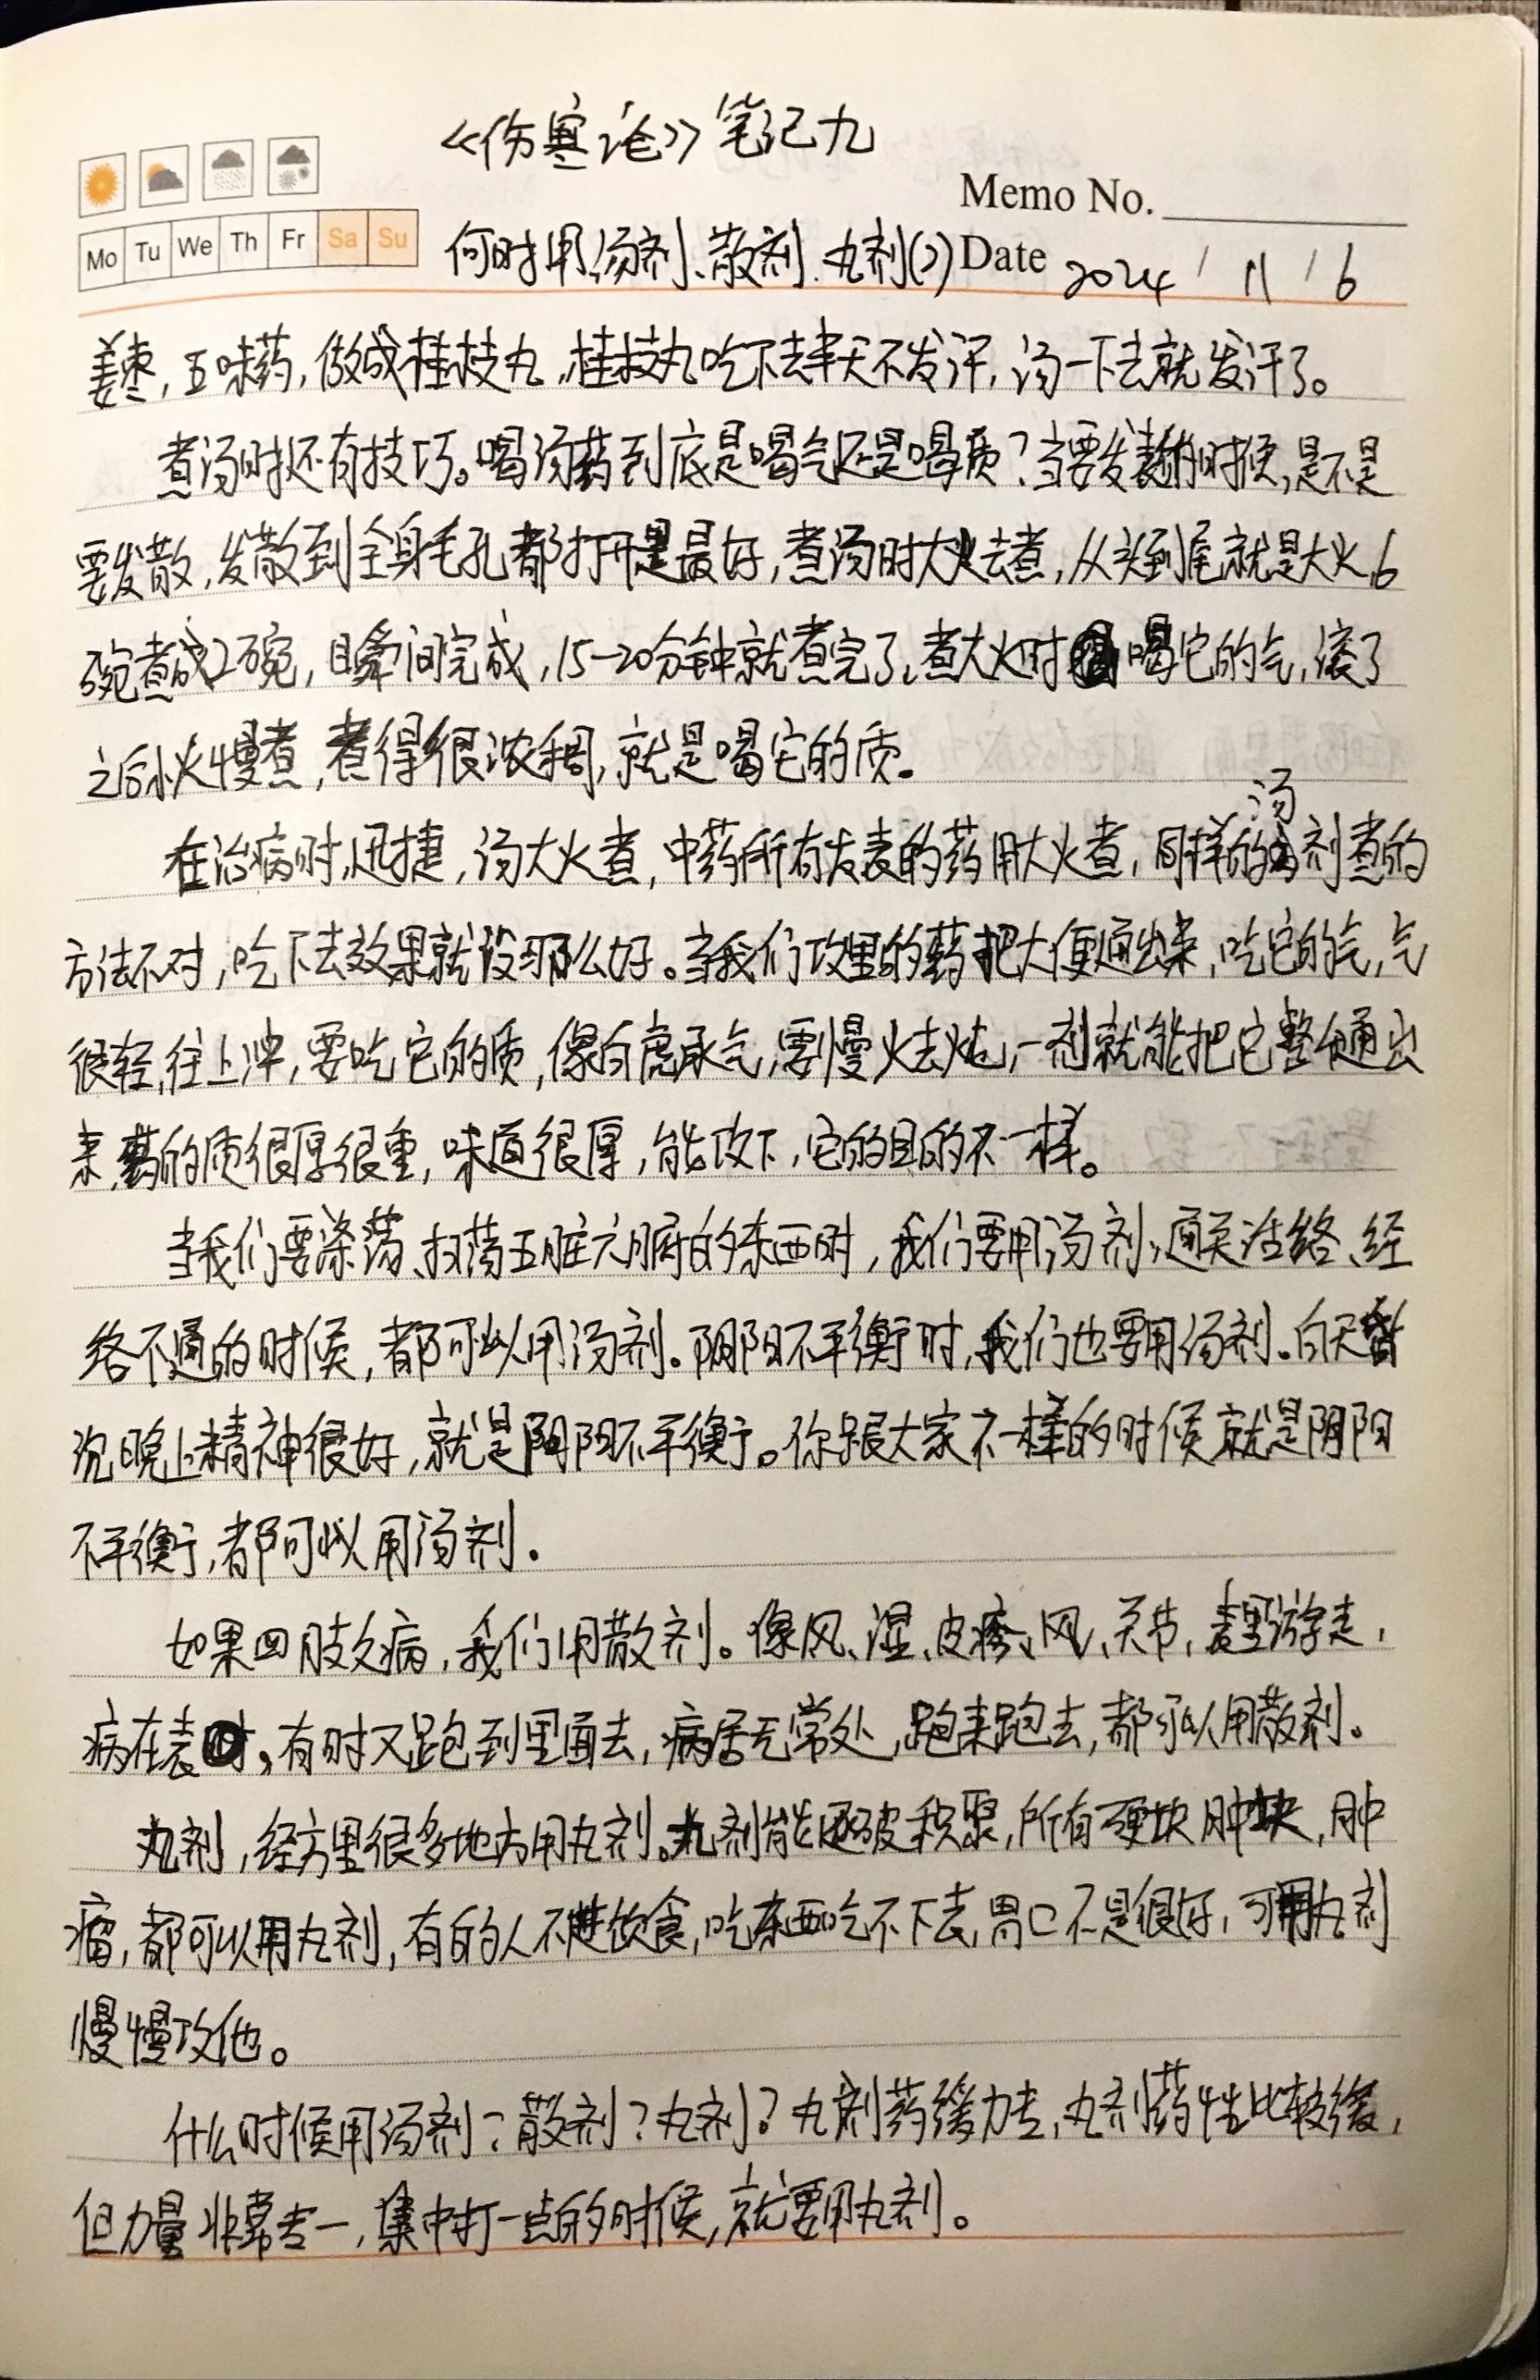 《伤寒论》笔记九
Memo No.
Mo Tu We Th Fr Sa Su
何时用汤剂、散剂、丸剂(2) Date 2024 / 11 / 6
姜枣,五味药,做成桂枝丸,桂枝丸吃下去半天不发汗,汤一下去就发汗了。
煮汤时还有技巧。喝汤药到底是喝气还是喝质?当要发表的时候,是不是
要发散,发散到全身毛孔都打开是最好,煮汤时大火去煮,从头到尾就是大火,6
碗煮成2碗,瞬间完成,15-20分钟就煮完了,煮大火时喝它的气,滚了
之后小火慢煮,煮得很浓稠,就是喝它的质。
在治病时,迅捷,汤大火煮,中药所有发表的药用大火煮,同样的汤剂煮的
方法不对,吃下去效果就没那么好。当我们攻里的药把大便通出来,吃它的气,气
很轻,往上冲,要吃它的质,像白虎承气,要慢火去炖,一剂就能把它整个通出
来,药的质很厚很重,味道很厚,能攻下,它的目的不一样。
当我们要涤荡、扫荡五脏六腑的东西时,我们要用汤剂,通关活络、经
络不通的时候,都可以用汤剂。阴阳不平衡时,我们也要用汤剂。白天昏
沉晚上精神很好,就是阴阳不平衡。你跟大家不一样的时候就是阴阳
不平衡,都可以用汤剂。
如果四肢久病,我们用散剂。像风、湿、皮疹、风、关节,表里游走,
病在表,有时又跑到里面去,病居无常处,跑来跑去,都可以用散剂。
丸剂,经方里很多地方用丸剂。丸剂能逐破积聚,所有硬块肿块,肿
瘤,都可以用丸剂,有的人不进饮食,吃东西吃不下去,胃口不是很好,可用丸剂
慢慢攻他。
什么时候用汤剂?散剂?丸剂?丸剂药缓力专,丸剂药性比较缓,
但力量非常专一,集中打一点的时候,就要用丸剂。